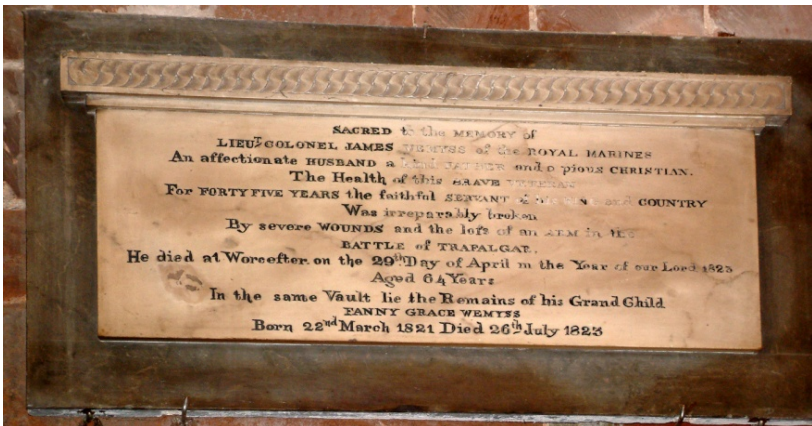 SACRED to the MEMORY of
LIEUT COLONEL JAMES WEMYSS of the ROYAL MARINES
An affectionate HUSBAND a kind FATHER and a pious CHRISTIAN.
The Health of this BRAVE VETERAN
For FORTY FIVE YEARS the faithful SERVANT of his and COUNTRY
Was irreparably broken
By severe WOUNDS and the loſs of an ARM in the
BATTLE of TRAFALGAR.
He died at Worceſter on the 29th Day of April in the Year of our Lord 1823
Aged 64 Years
In the same Vault lie the Remains of his Grand Child
FANNY GRACE WEMYSS
Born 22nd March 1821 Died 26th July 1823